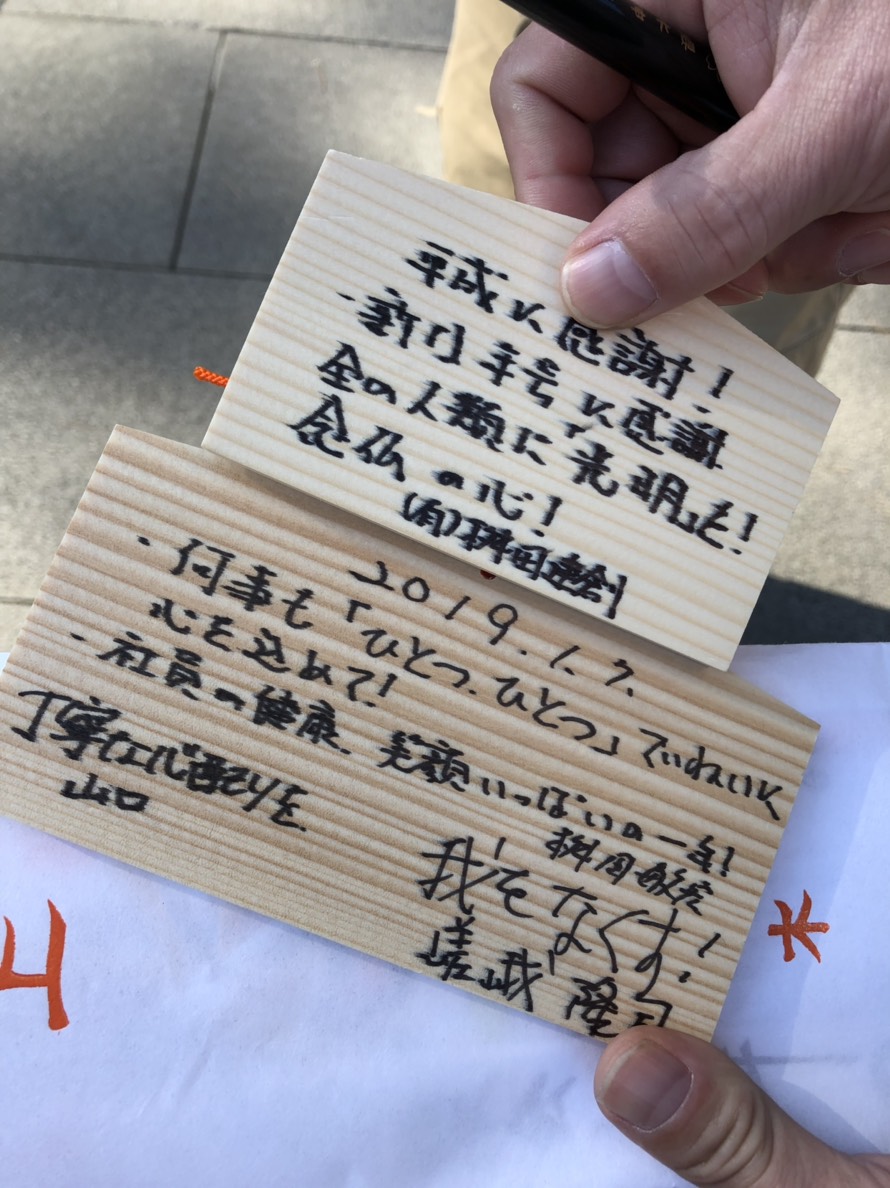 平成に感謝!
・新しい年号に感謝
全の人類に「光明」を!
念仏の心!
(有)桝田建創
2019.1.7.
・何事も「ひとつ、ひとつ」でいねいに
心を込めて!
・社員の健康、笑顔いっぱいの一年!
丁寧な心配りを
山口
我をなくす!
嵯峨 隆
上
木